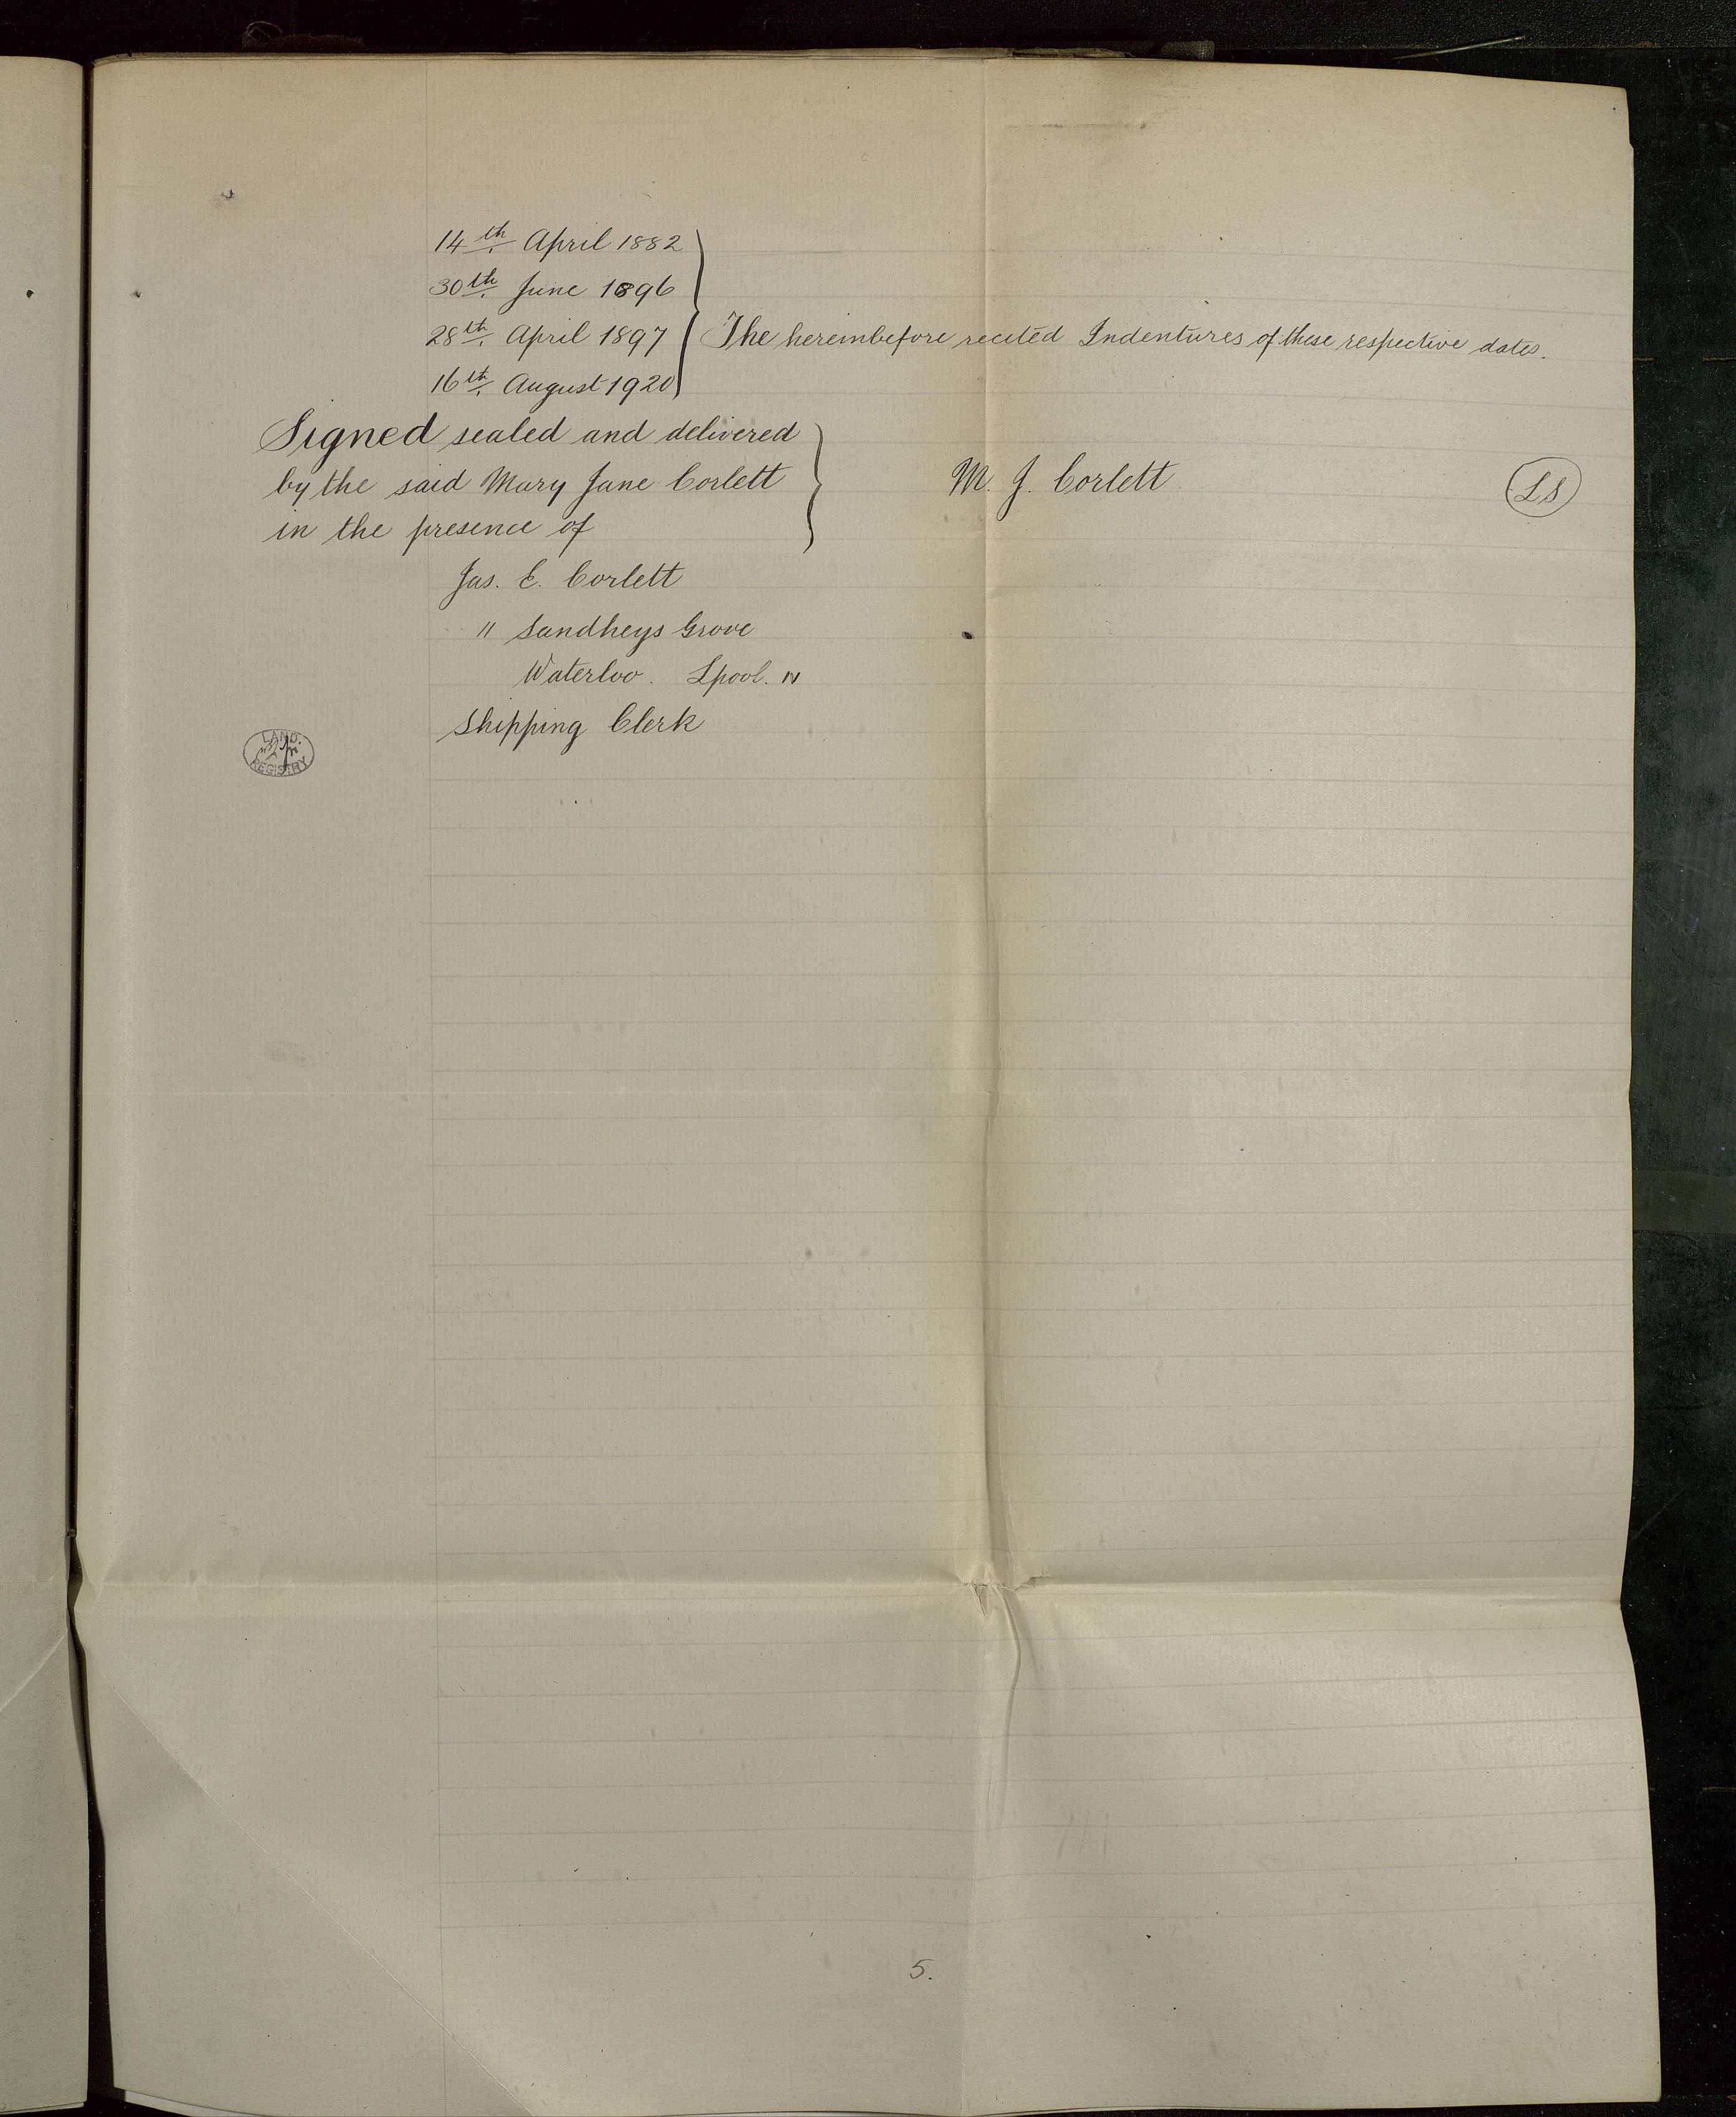 14th April 1882
30th June 1896
28th April 1897 The hereinbefore recited Indentures of these respective dates.
16th August 1920
Signed sealed and delivered
by the said Mary Jane Corlett M. J. Corlett LS
in the presence of
Jas. E. Corlett
11 Sandheys Grove
Waterloo. Lpool. N
Shipping Clerk
LAND
REGISTRY
5.